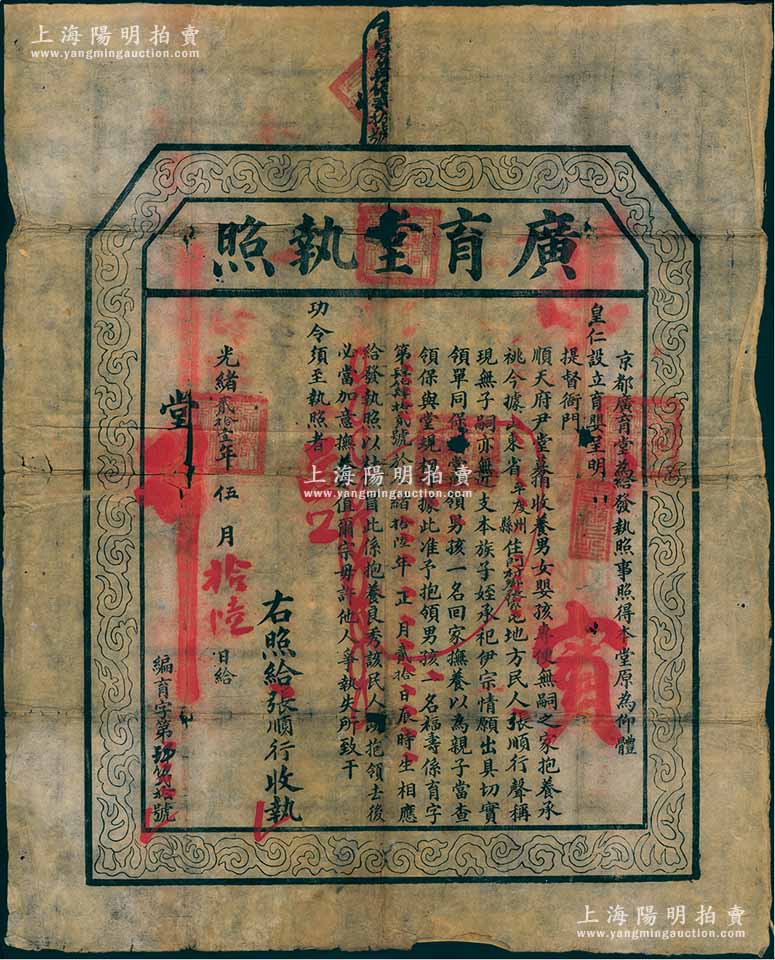 上海陽明拍賣
www.yangmingauction.com
廣育堂執照
京都廣育堂為給發執照事照得本堂原為仰體
皇仁設立育嬰呈明
提督衙門
順天府尹堂募捐收養男女嬰孩弃使無嗣之家抱養承
祧今據山東省平度州縣住地方民人張順行聲稱
現無子嗣亦無近支本族子姪承祀伊宗情願出具切實
領單同保領男孩一名回家撫養以為親子當查
領保與堂規據此准予抱領男孩一名福壽係育字
第貳號於緒拾陸年正月貳拾日辰時生相應
給發執照以自此係抱養良秀該民人既抱領去後
必當加意撫值爾宗毋許他人爭執失所致干
功令須至執照者
右照給張順行收執
光緒貳拾壹年伍月拾陸日給
堂
編育字第號
賞
上海陽明拍賣
www.yangmingauction.com